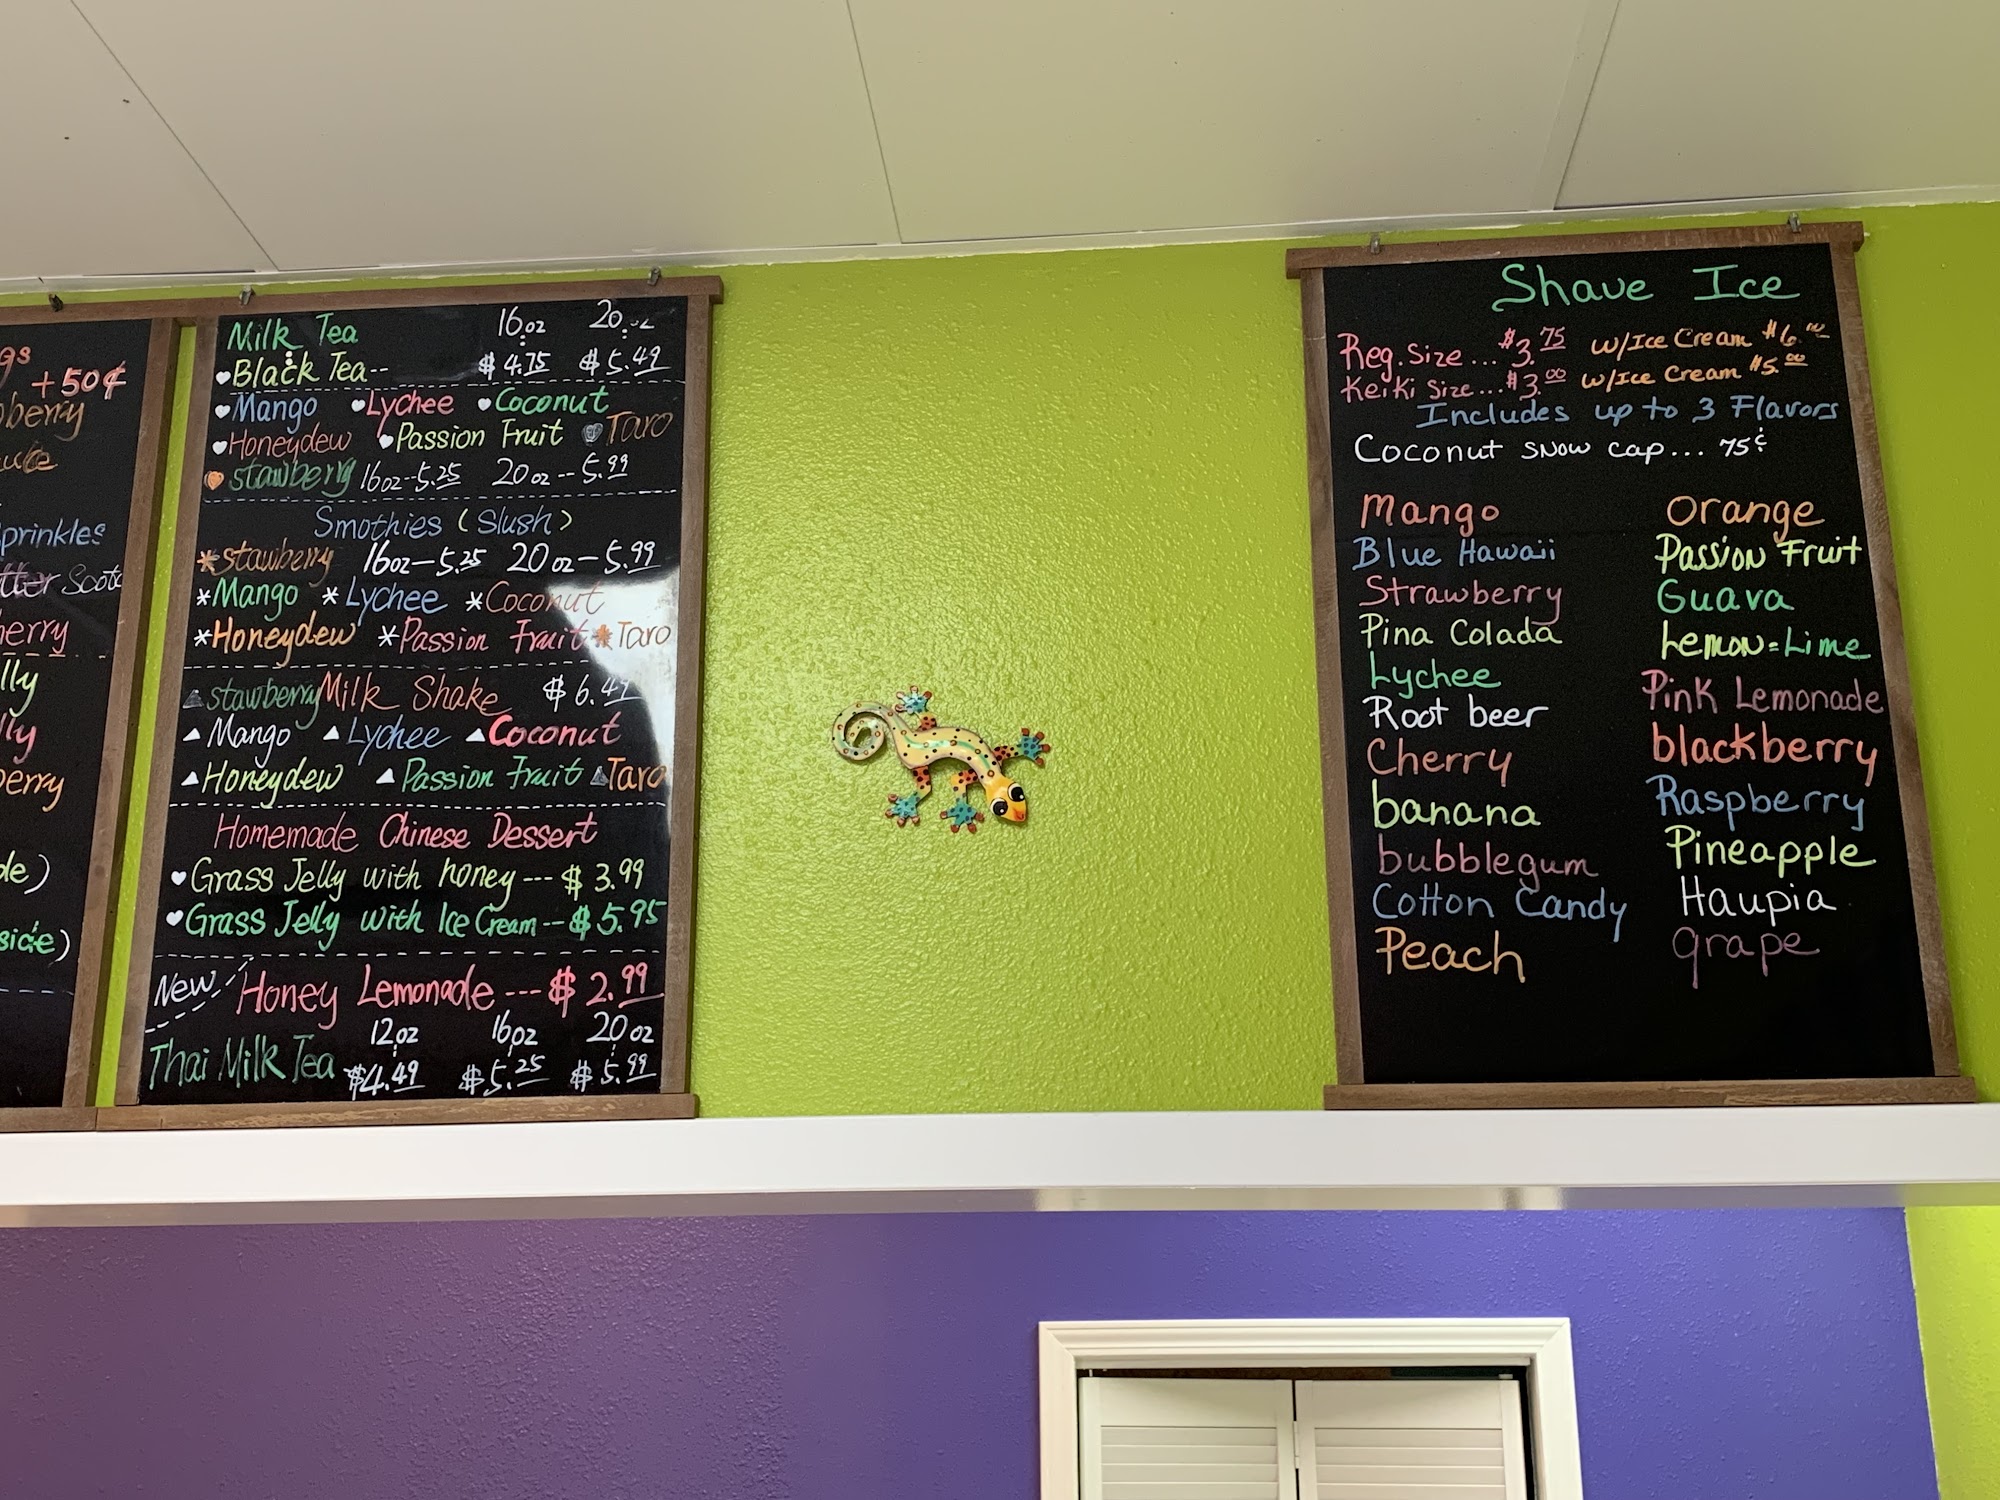 +50¢
Sprinkles
Milk Tea 16oz 20
Black Tea-- $4.75 $5.49
Mango Lychee Coconut
Honeydew Passion Fruit Taro
stawberry 16oz--5.25 20oz--5.99
Smothies (Slush)
*stawberry 16oz—5.25 20oz—5.99
*Mango *Lychee *Coconut
*Honeydew *Passion Fruit *Taro
stawberry Milk Shake $6.49
Mango Lychee Coconut
Honeydew Passion Fruit Taro
Homemade Chinese Dessert
Grass Jelly with honey---$3.99
Grass Jelly with Ice Cream--$5.95
New Honey Lemonade---$2.99
12oz 16oz 20oz
Thai Milk Tea $4.49 $5.25 $5.99
Shave Ice
Reg. Size...$3.75 w/Ice Cream $6.00
KeiKi Size...$3.00 w/Ice Cream $5.00
Includes up to 3 Flavors
Coconut snow cap... 75¢
Mango
Blue Hawaii
Strawberry
Pina Colada
Lychee
Root beer
Cherry
banana
bubblegum
Cotton Candy
Peach
Orange
Passion Fruit
Guava
Lemon=Lime
Pink Lemonade
blackberry
Raspberry
Pineapple
Haupia
grape